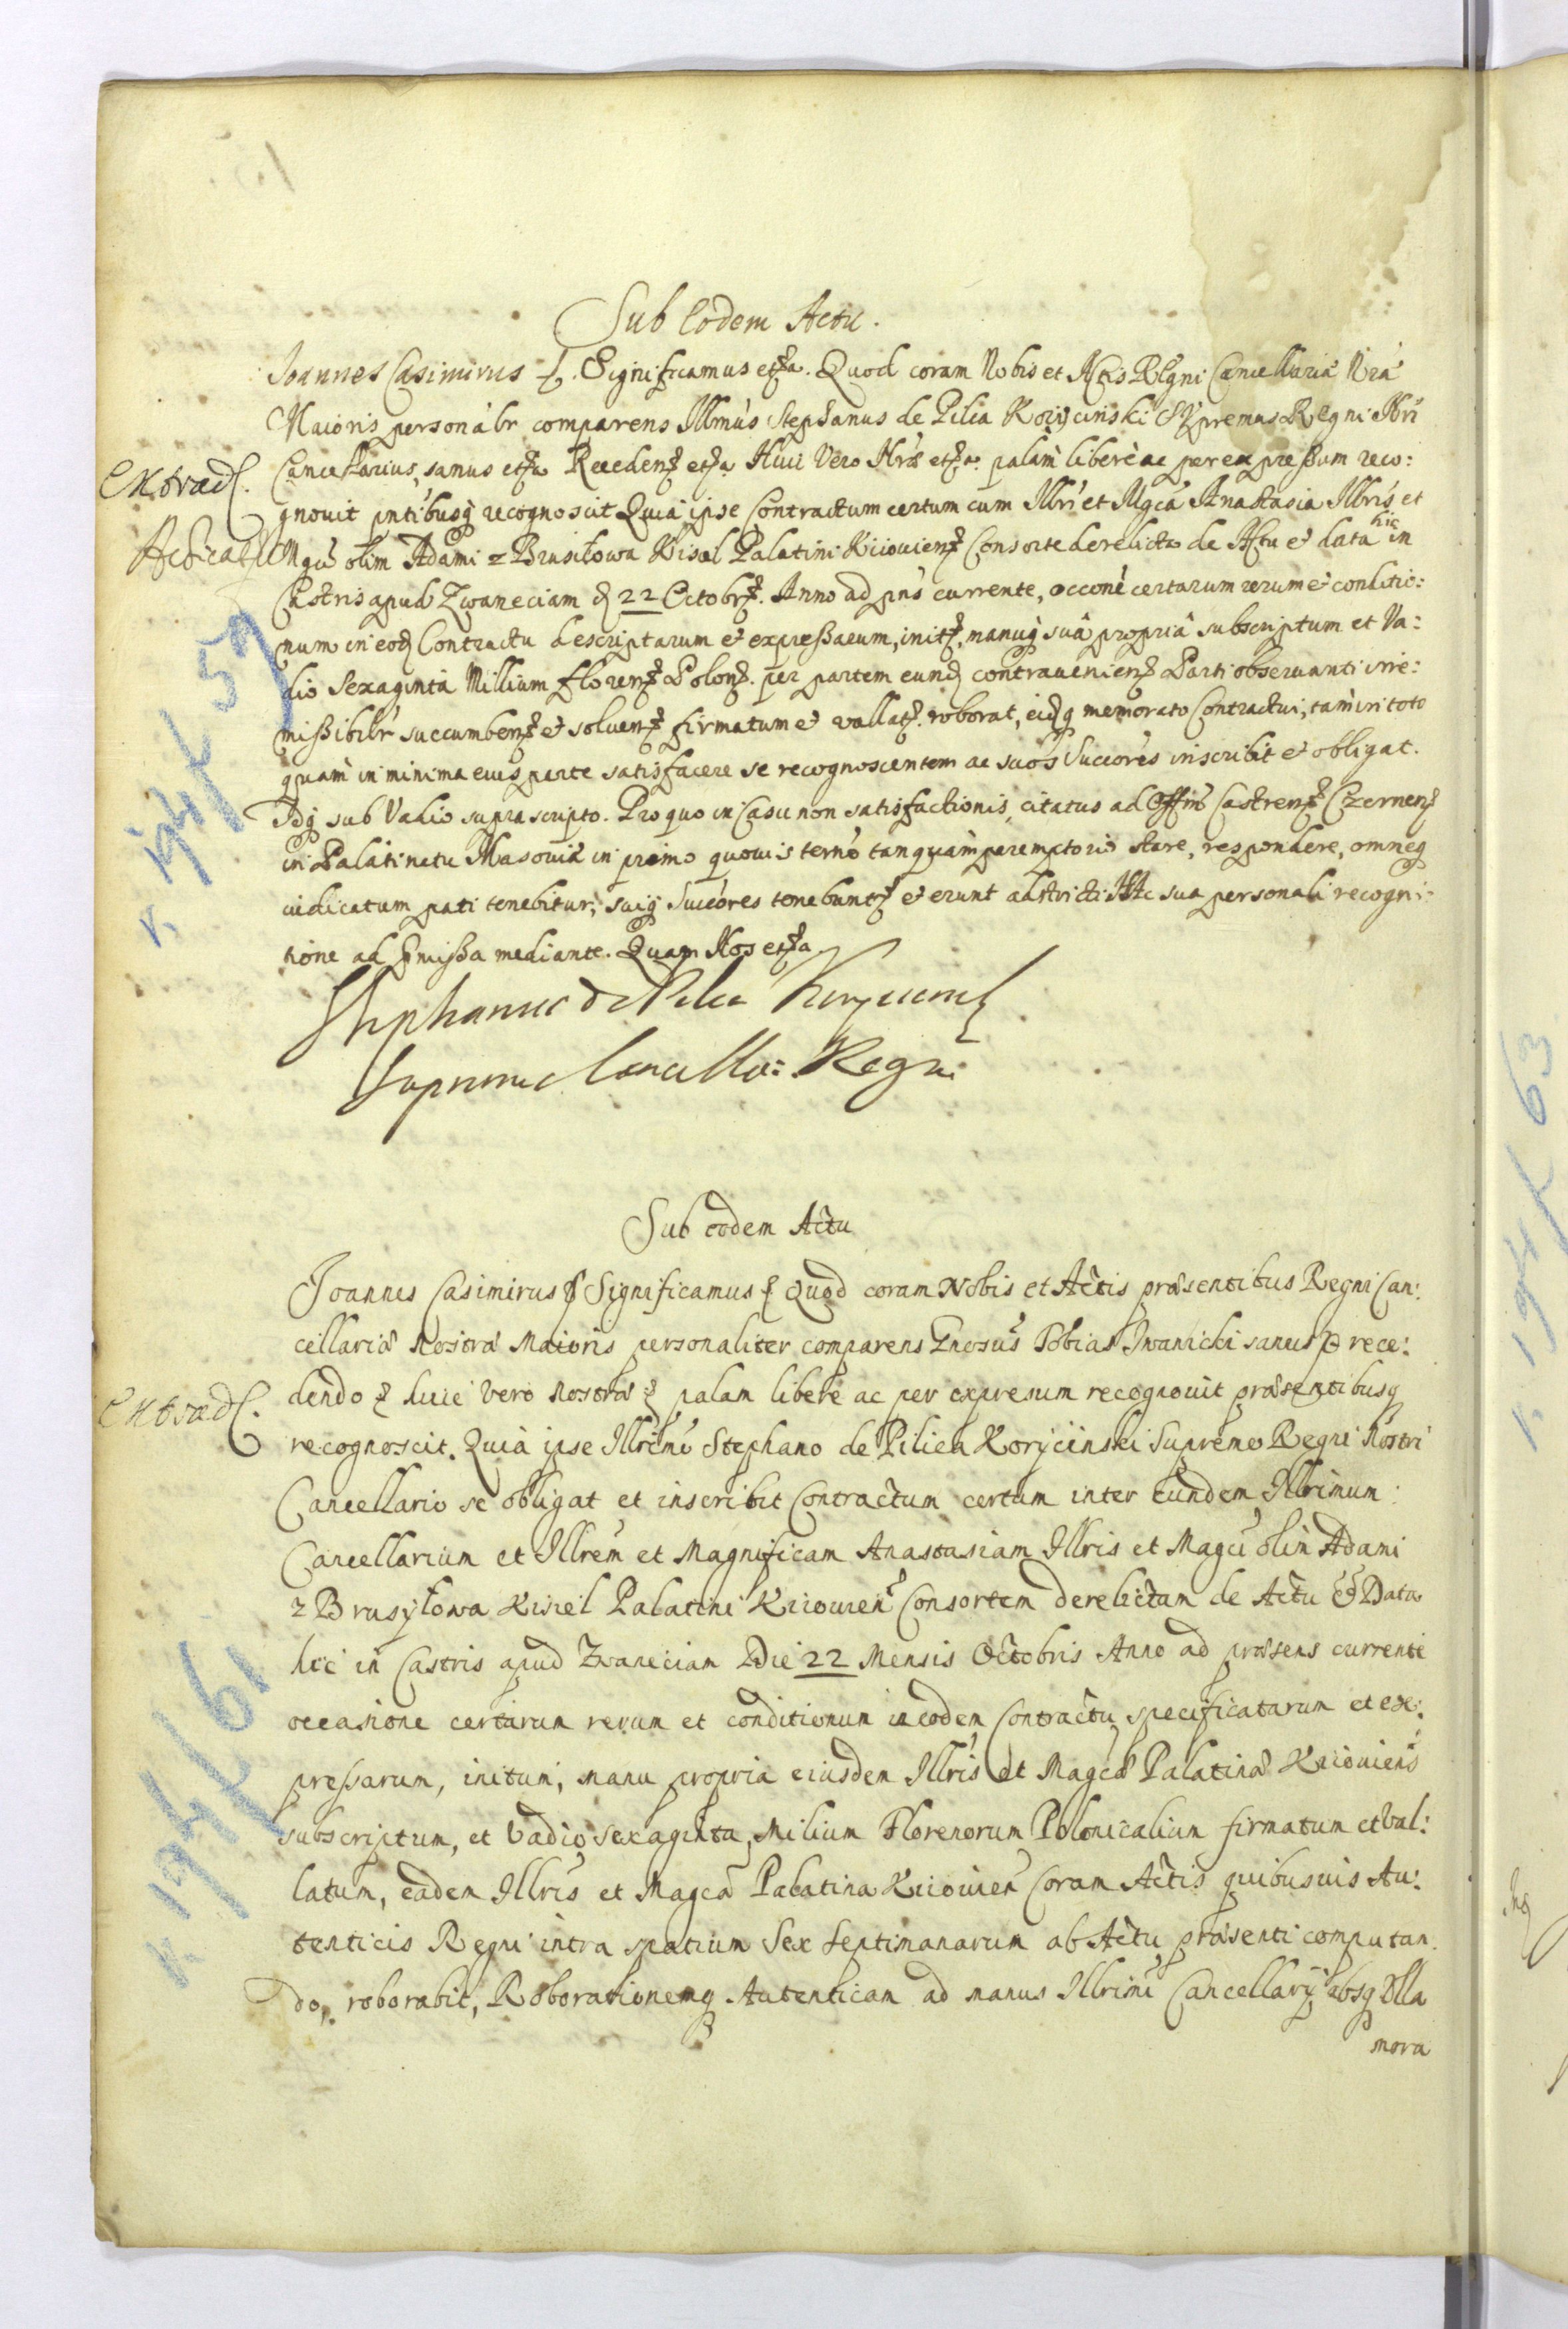 Sub Eodem Actu.
Joannes Casimirus Significamus etca. Quod coram Nobis et Actis Regni Cancellariæ Nræ
Maioris personâlr comparens Illmùs Stephanus de Pilia Koryciński Supremus Regni Nri
Cancellarius, sanus etca Recedenz etca Huic Vero Nræ etca palàm liberè ac per expressum reco:
Extrad.
gnovit pntibusq recognoscit Quia ipse Contractum certum cum Illri et Mgca Anastasia Illris et
Mgci olim Adami z Brusiłowa Kisiel Palatini Kiiouienz Consorte derelicta de Actu et data hic in
Castris apud Zwaneciam d 22 Octobrz. Anno ad pns currente, occone certarum rerum et conditio:
num in eod Contractu descriptarum et expressarum, initz, manuq suâ propriâ subscriptum et Va:
dio Sexaginta Millium florenz Polonz. per partem eund contravenienz Parti observanti irre:
missibilr succumbenz et soluenz firmatum et vallatz. roborat, eidq memorato Contractui, tàm in toto
quàm in minima eius parte satisfacere se recognoscentem ac suos Succores inscribit et obligat.
Idq sub Vadio suprascripto. Pro quo in Casu non satisfactionis, citatus ad Offm Castrenz Czernenz
in Palatinatu Masouiæ in primo quouis terno tanquàm peremptorio stare, respondere, omneq
iudicatum pati tenebitur, suiq Succores tenebuntz et erunt adstricti Hac sua personali recogni:
tione ad pmissa mediante. Quam Nos etca
Stephanus de Pilca Korycinsk
Supremus Cancella: Regni
K 194/59
Sub eodem Actu
Joannes Casimirus Significamus Quod coram Nobis et Actis præsentibus Regni Can:
cellariæ Nostræ Maioris personaliter comparens Gnosus Tobias Iwanicki sanus p rece:
Extrad.
dendo huic vero Nostræ palam libere ac per expresum recognouit præsentibusq
recognoscit. Quia ipse Illrimi Stephano de Pilica Koryciński Supremo Regni Nostri
Cancellario se obligat et inscribit Contractum certum inter Eundem Illrimum
Cancellarium et Illrem et Magnificam Anastasiam Illris et Magci olim Adami
z Brusyłowa Kisiel Palatini Kiiouien Consortem derelictam de Actu et Data
hic in Castris apud Zwaneciam Die 22 Mensis Octobris Anno ad præsens currenti
occasione certarum rerum et conditionum in eodem Contractu specificatarum et ex:
pressarum, initum, manu propria eiusdem Illris et Magcæ Palatinæ Kiiouiens
subscriptum, et Vadio sexaginta, Milium Florenorum Polonicalium firmatum et val:
latum, eadem Illris et Magca Palatina Kiiouien Coram Actis quibusuis Au:
tenticis Regni intra spatium Sex Septimanarum ab Actu præsenti computan
do, roborabit, Roborationemq Autenticam ad manus Illrimi Cancellarij absq Ulla
mora
K 194/61
K 194/63